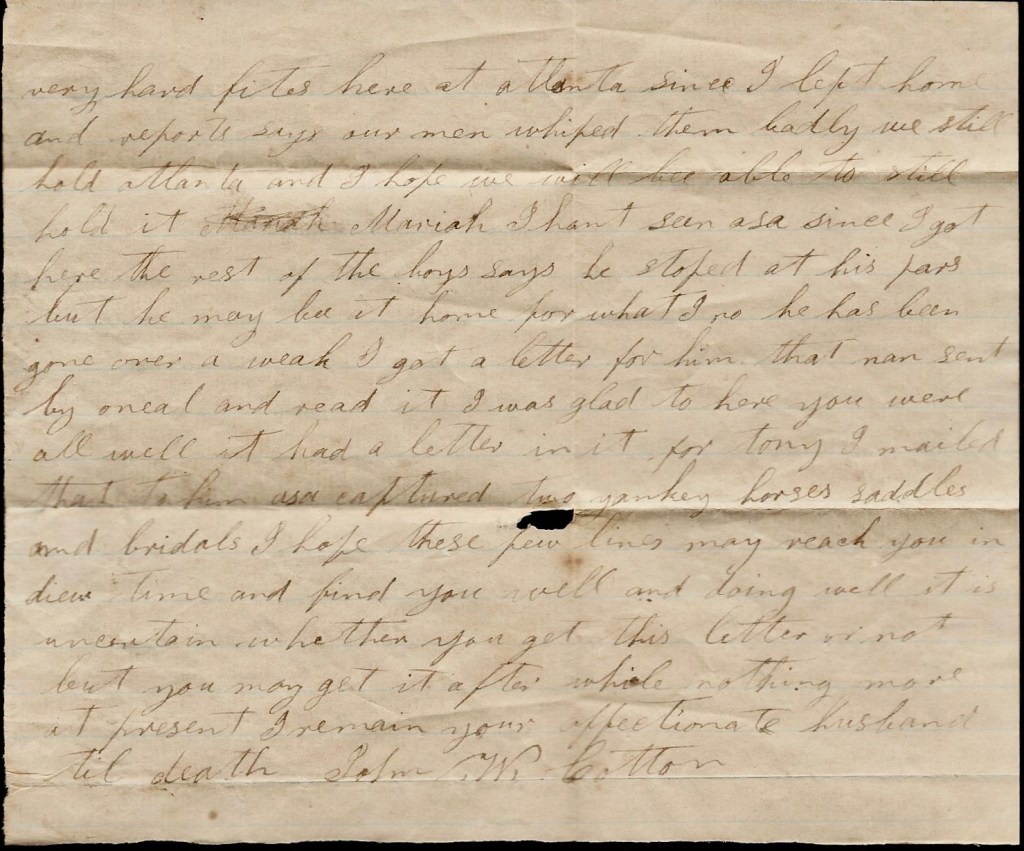 very hard fites here at atlanta since I left home
and reports says our men whiped them badly we still
hold atlanta and I hope we will bee able to still
hold it Mariah I hant seen asa since I got
here the rest of the boys says he stoped at his pars
but he may bee at home for what I no he has been
gone over a weak I got a letter for him that nan sent
by oneal and read it I was glad to here you were
all well it had a letter in it for tony I mailed
that to him asa captured two yankey horses saddles
and bridals I hope these few lines may reach you in
diew time and find you well and doing well it is
uncertain whether you get this letter or not
but you may get it after while nothing more
at present I remain your affectionate husband
til death John W. Cotton